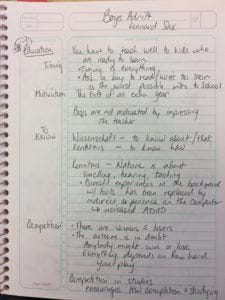 Boys Adrift
Leonard Sax
Education
You have to teach well to kids who
are ready to learn
Timing
• Timing is everything
• Ask a boy to read/write too soon
is the worst possible intro to school
Motivation
The Gift of an extra year
Boys are not motivated by impressing
the teacher
To
Know
Wissenschaft – to know about/that
Kenntnis – to know how
Kenntnis – Nature is about
smelling, hearing, tasting
• Direct experiences in the backyard
w/ tools has been replaced by
indirect experience on the computer
↳ increased ADHD
Competition
• There are winners & losers
• The outcome is in doubt
Anybody might win or lose
Everything depends on how hard
you play
Competition in studies
encourages HW completion & studying